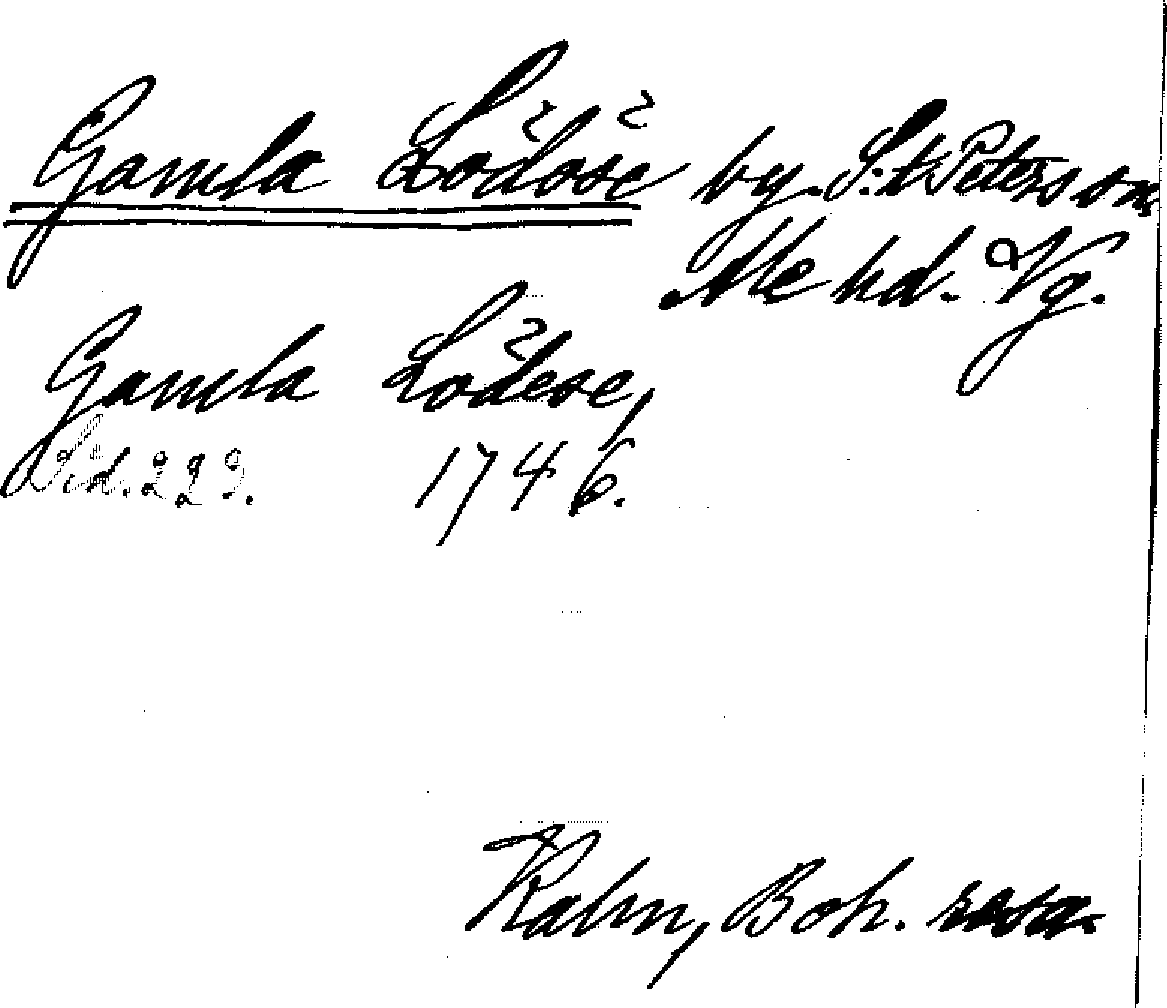 Gamla Lödöse by. S:t Peters sn.
Ale hd. Vg.
Gamla Lödese,
Sid. 223. 1746.
Kalm, Boh. resa.